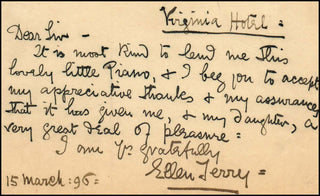 Virginia Hotel =
Dear Sir -
It is most kind to lend me this
lovely little Piano, & I beg you to accept
my appreciative thanks & my assurances
that it has given me, & my daughter, a
very great deal of pleasure =
I am Yrs gratefully
Ellen Terry =
15 March : 96 =